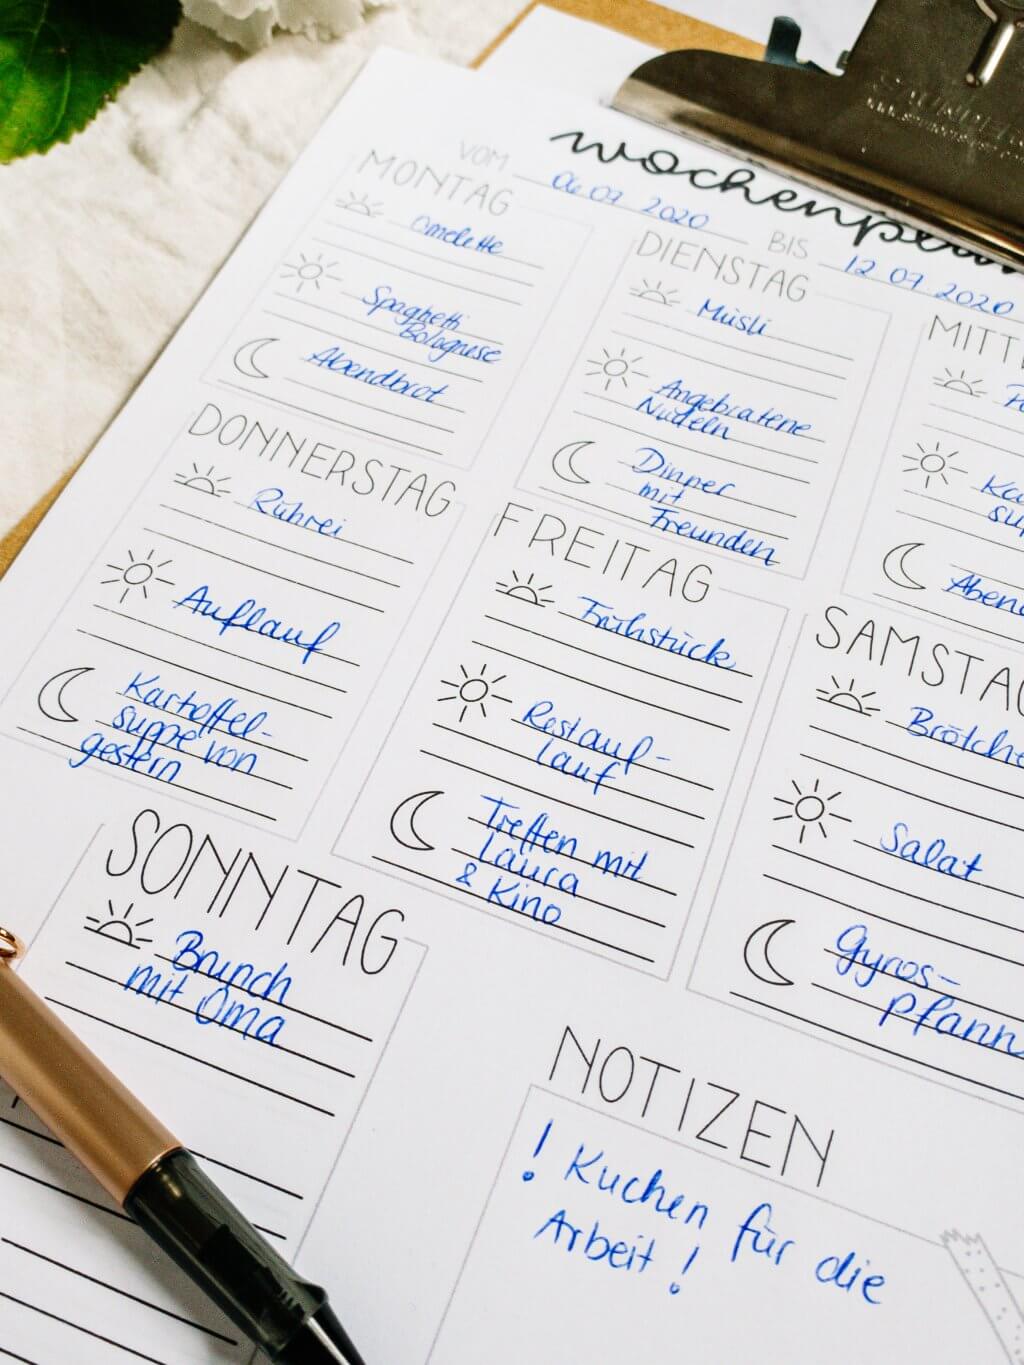 wochenplan
VOM 06 07 2020 BIS 12 07 2020
MONTAG
Omelette
Spaghetti
Bolognese
Abendbrot
DIENSTAG
Müsli
Angebratene
Nudeln
Dinner
mit
Freunden
MITT
Ka
sup
Abend
DONNERSTAG
Rührei
Auflauf
Kartoffel-
suppe von
gestern
FREITAG
Frühstück
Restauf-
lauf
Treffen mit
Laura
& Kino
SAMSTAG
Brötche
Salat
Gyros-
pfann
SONNTAG
Brunch
mit Oma
NOTIZEN
! Kuchen für die
Arbeit !